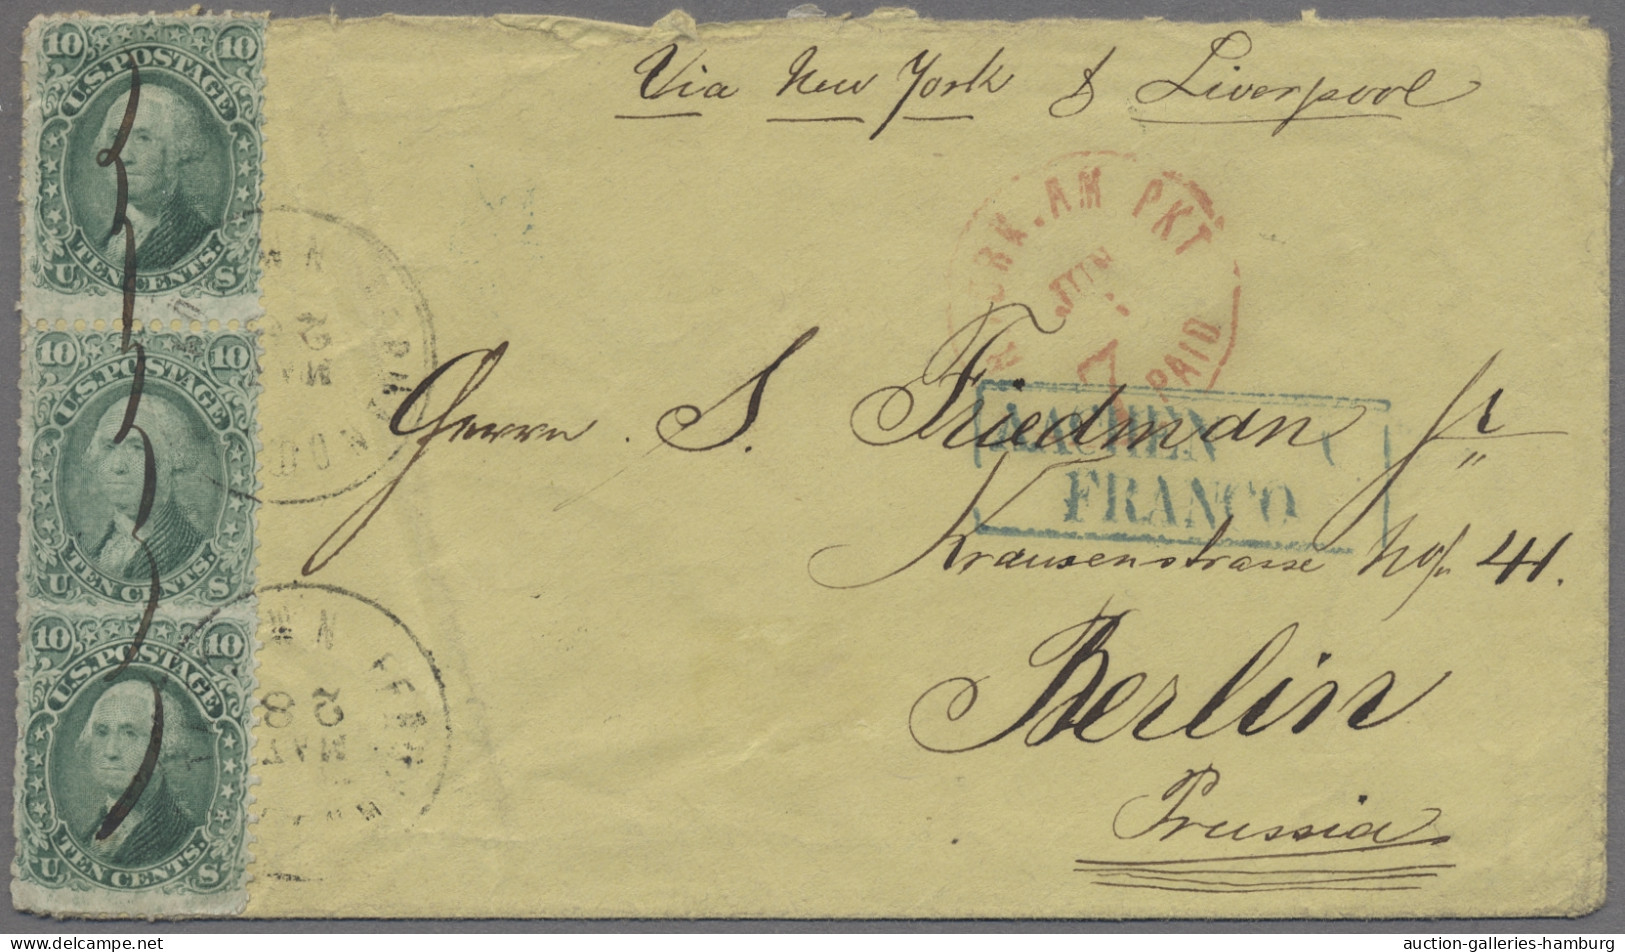 10 10
U.S. POSTAGE
TEN CENTS.
U S
10 10
U.S. POSTAGE
TEN CENTS.
U S
10 10
U.S. POSTAGE
TEN CENTS.
U S
Via New York & Liverpool
YORK. AM PKT
JUN
7
PAID
Herrn S. Friedman jr
AACHEN
FRANCO
Krausenstrasse 41.
Berlin
Prussia
25
MAY
28
MAY
auction-galleries-hamburg